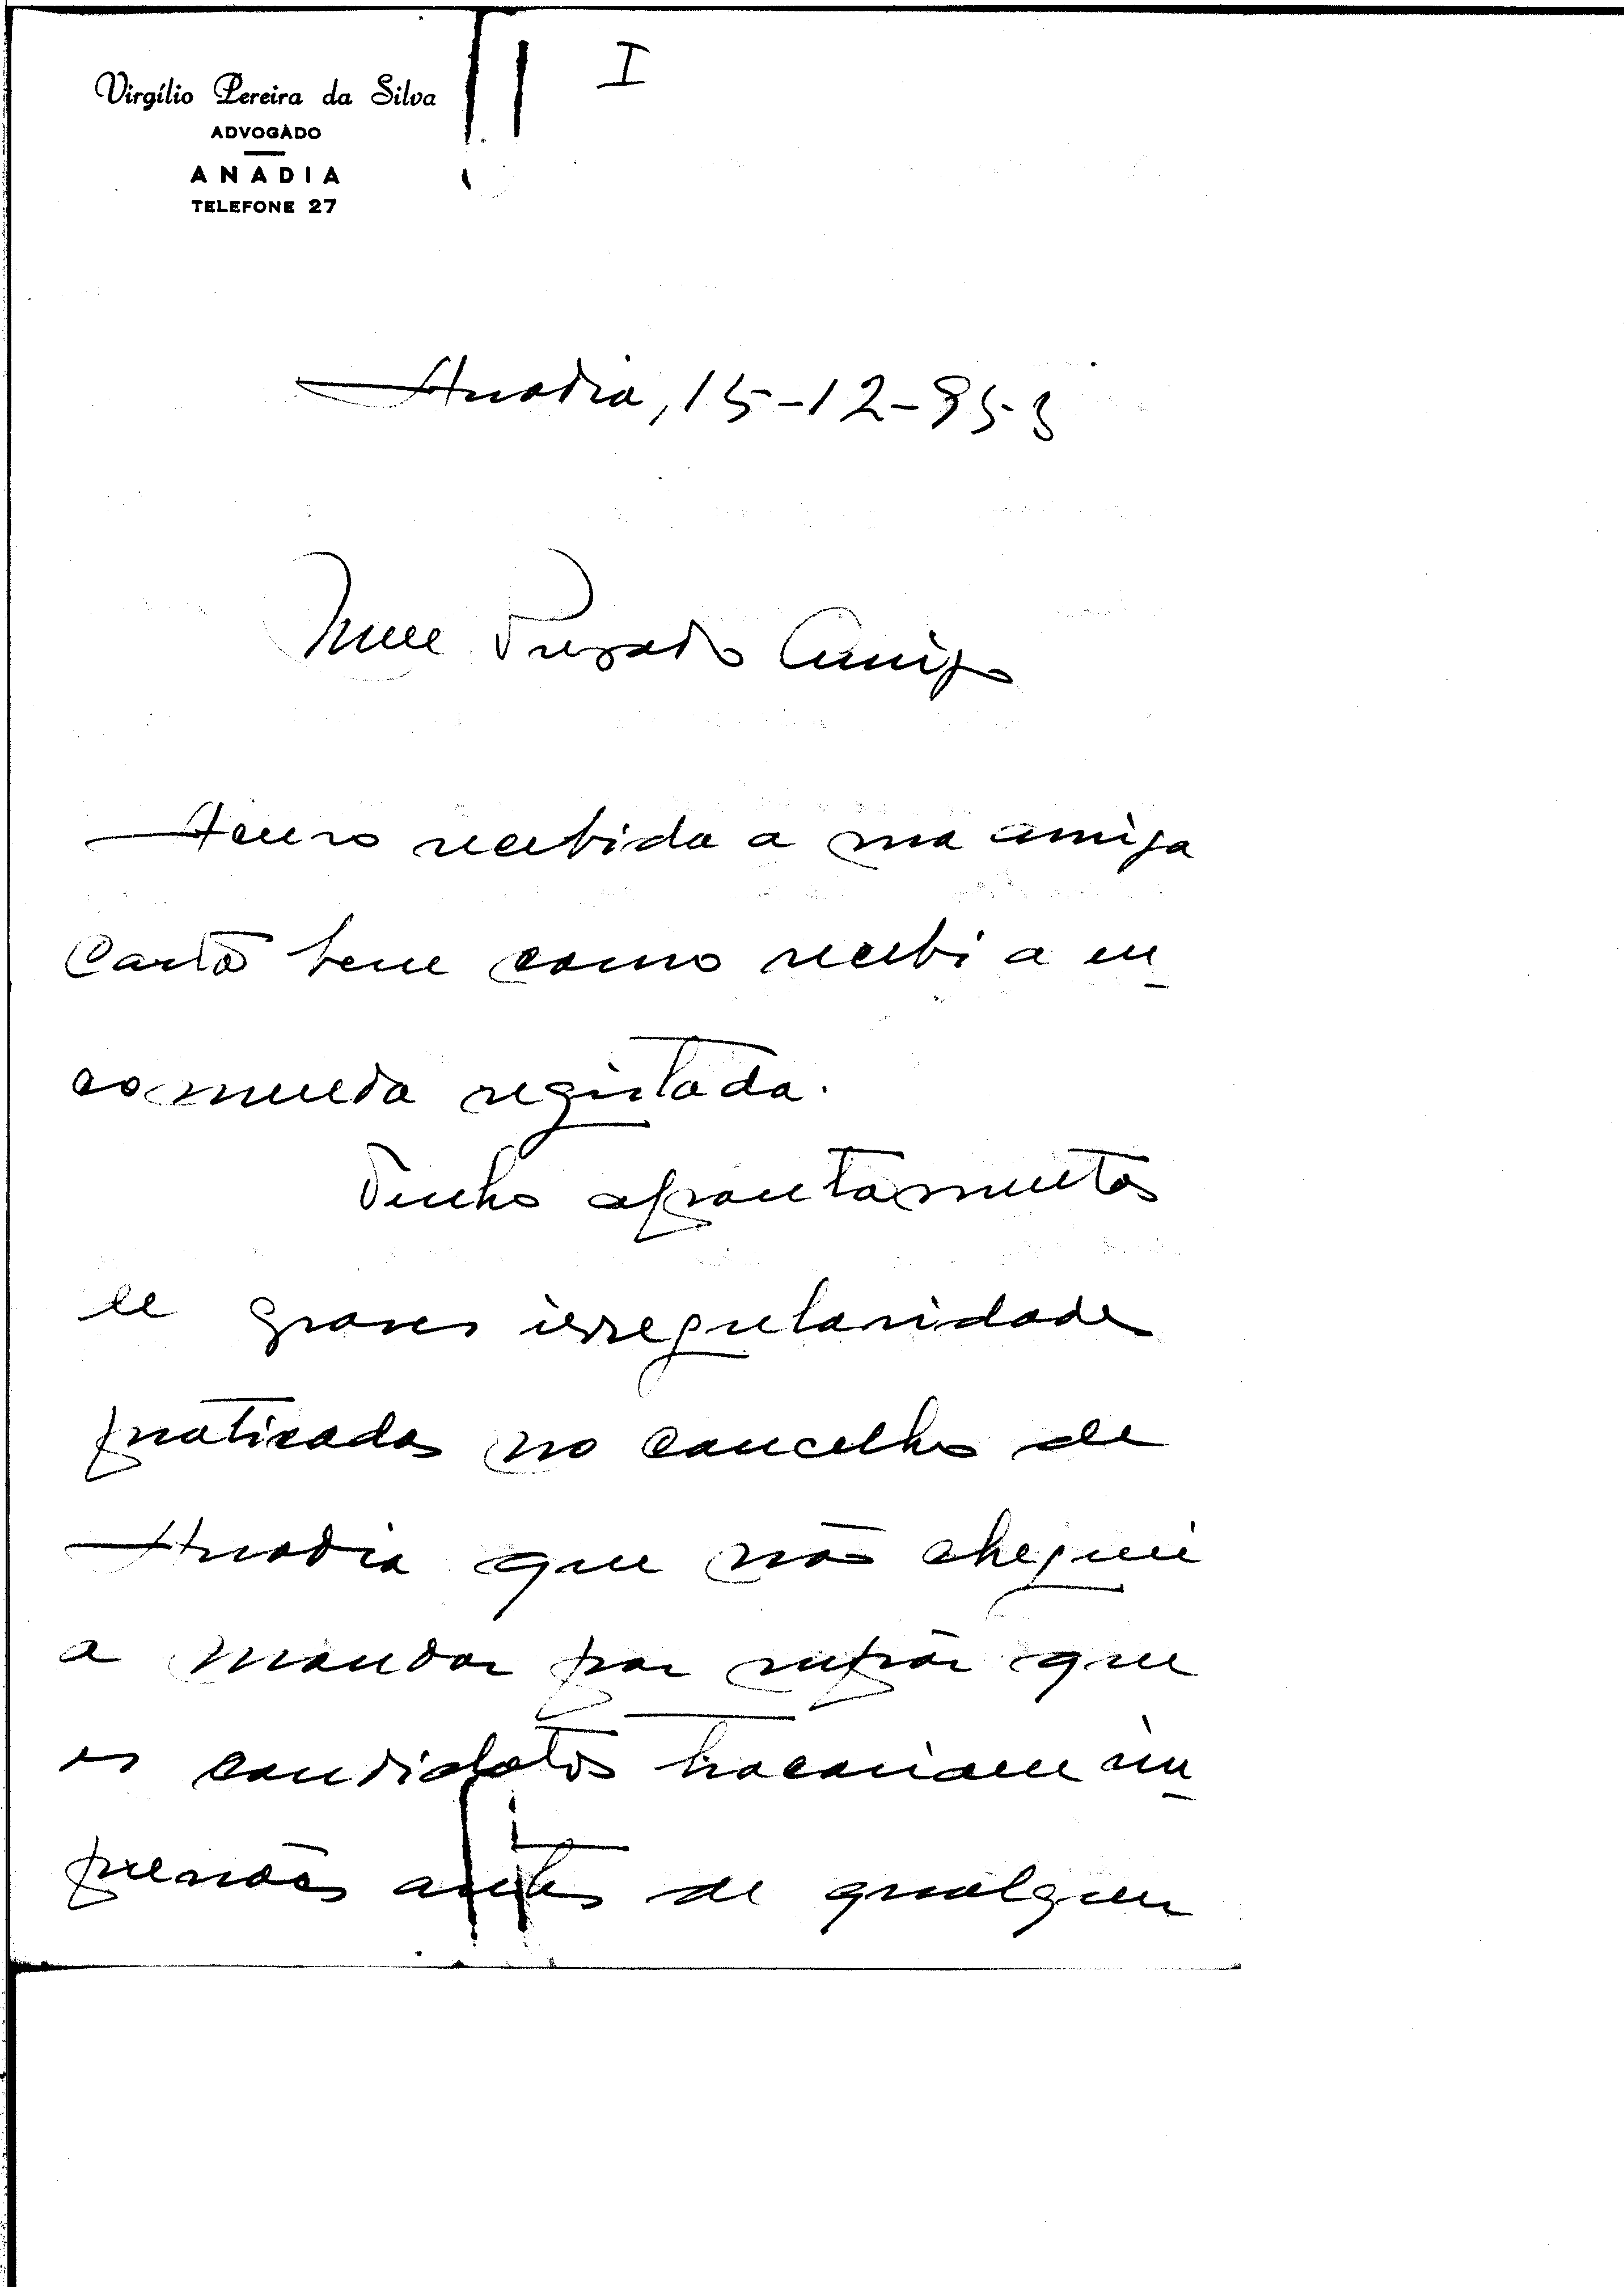 I
Virgílio Pereira da Silva
ADVOGADO
ANADIA
TELEFONE 27
Anadia, 15-12-953
Meu Prezado Amigo
Acuso recebida a sua amiga
carta bem como recebi a en-
comenda registada.
Tenho apontamentos
de graves irregularidades
praticadas no concelho de
Anadia que não cheguei
a mandar por supôr que
os candidatos trocariam im-
pressões antes de qualquer